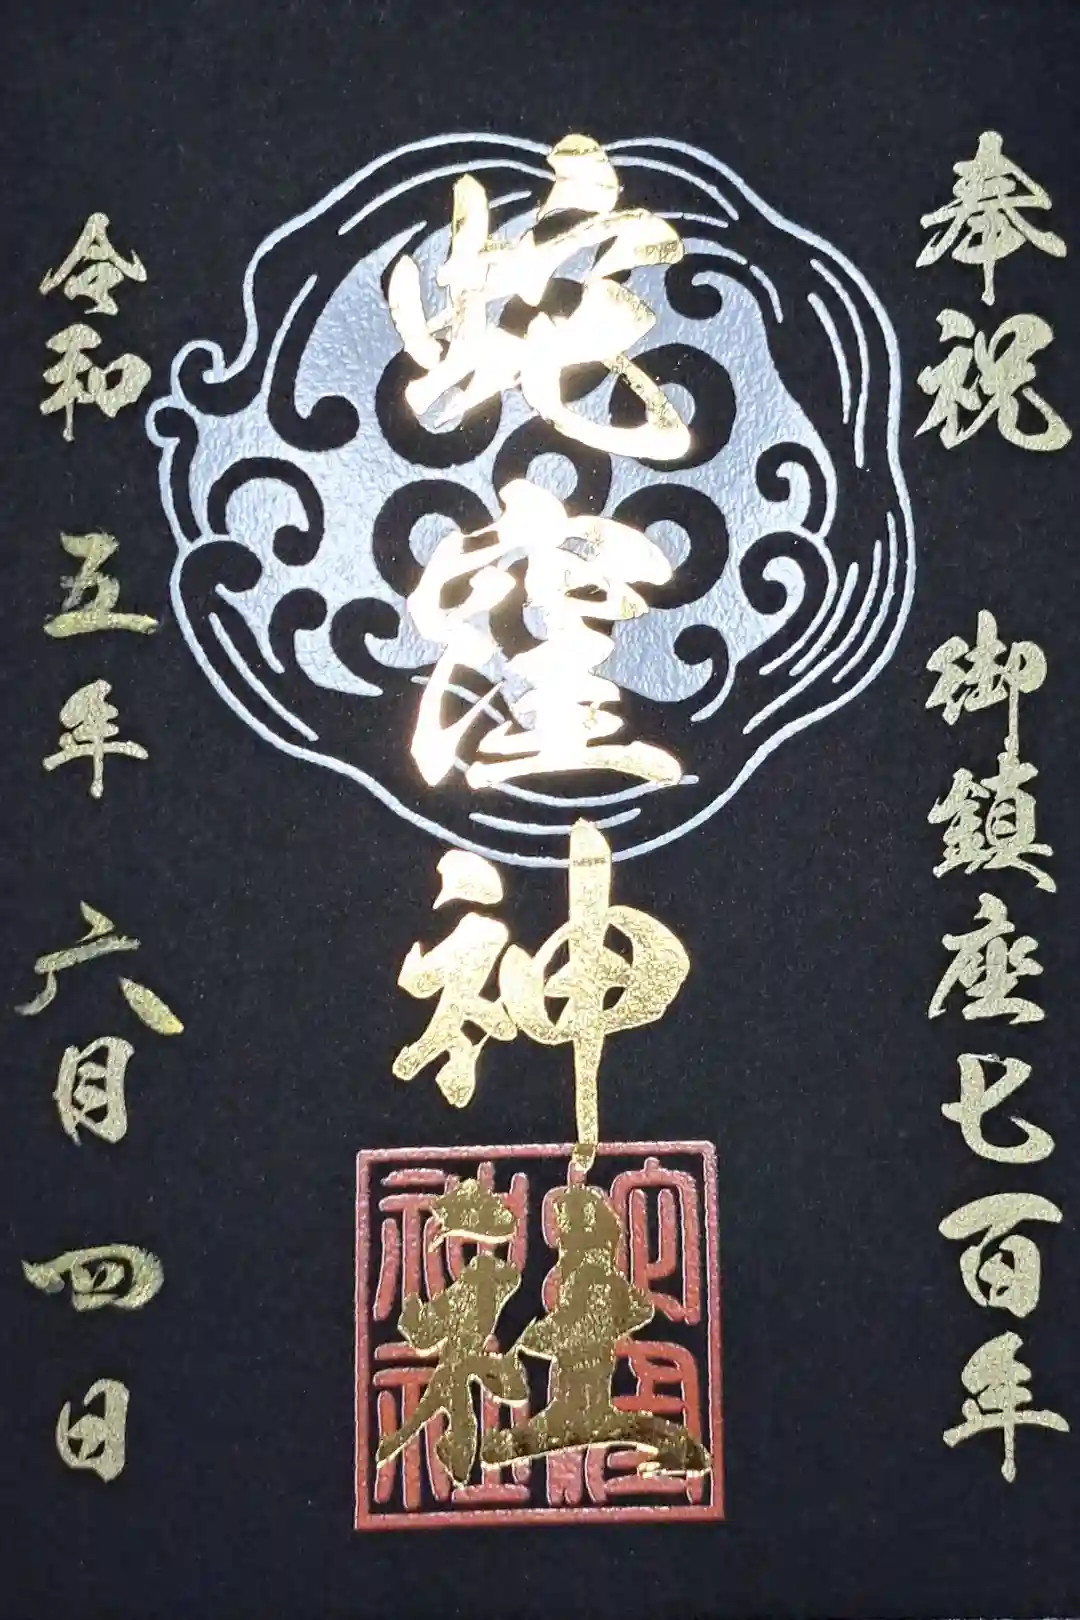 奉祝 御鎮座七百年
蛇窪神社
令和五年 六月四日